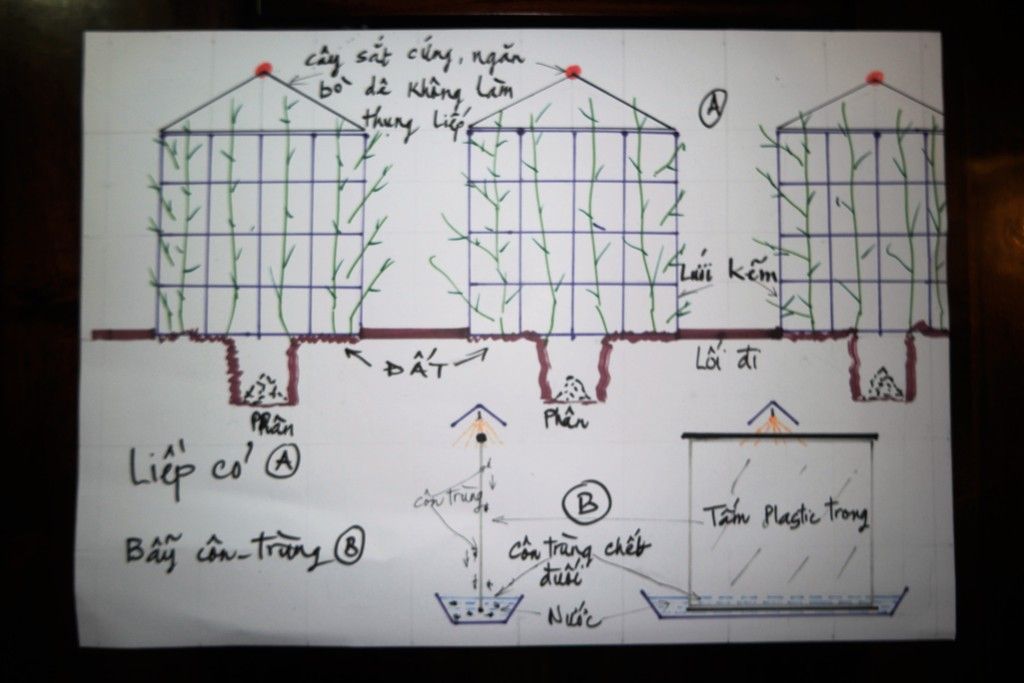 cây sắt cứng, ngăn
bò dê không làm
thủng liếp
A
Lưới kẽm
ĐẤT
Lối đi
Phân
Phân
Liếp cỏ A
Bẫy côn-trùng B
côn trùng
B
Tấm Plastic trong
Côn trùng chết
đuối
Nước